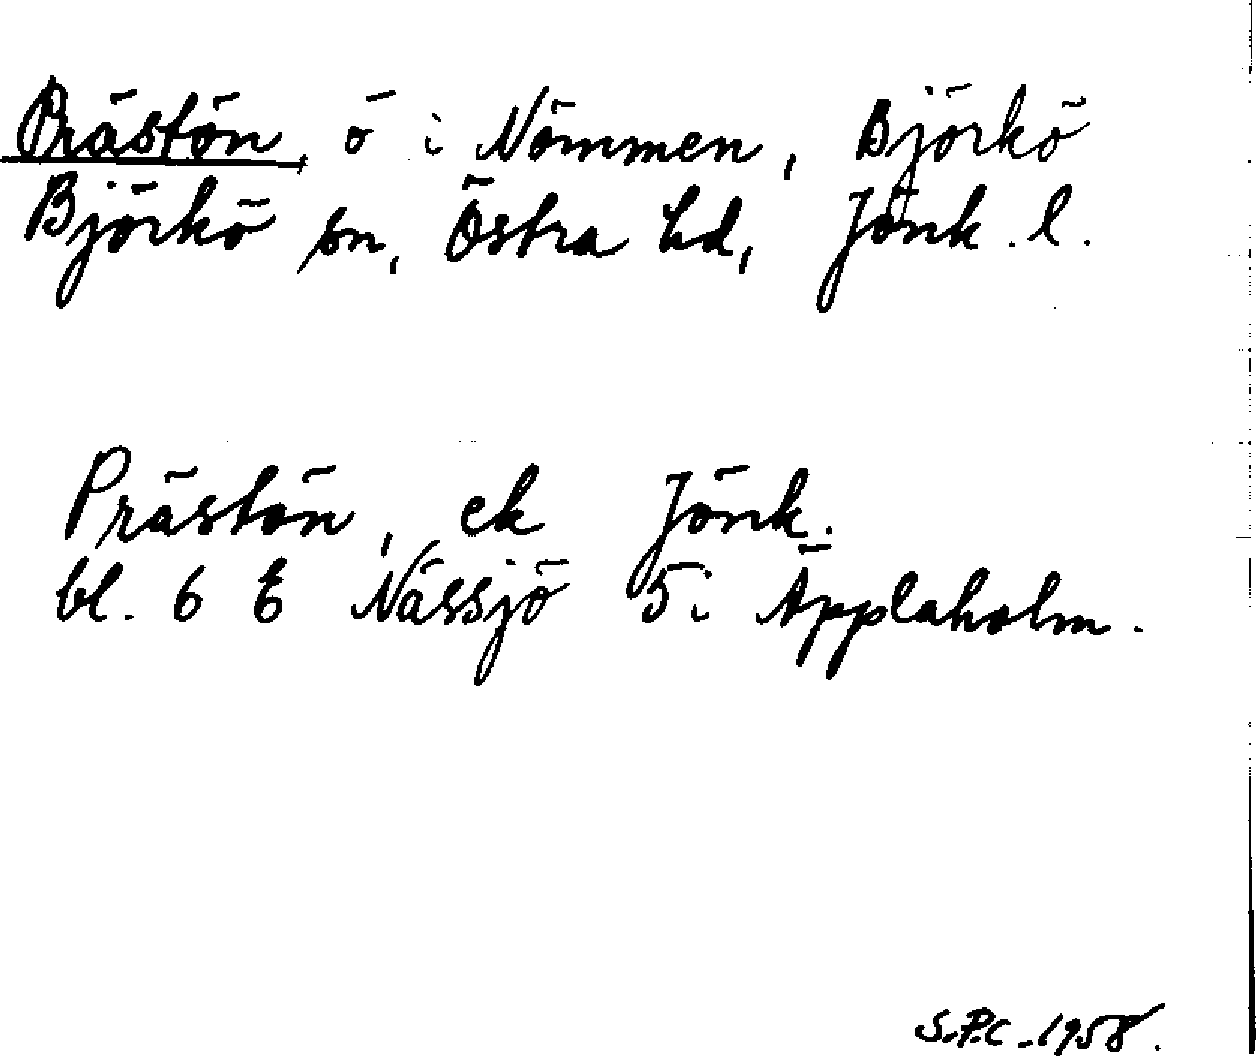 Prästön, ö i Nömmen, Björkö
Björkö sn, Östra hd, Jönk. l.
Prästön, ek Jönk.
bl. 6 E Nässjö 5i Äpplaholm.
S.P.C. 1958.